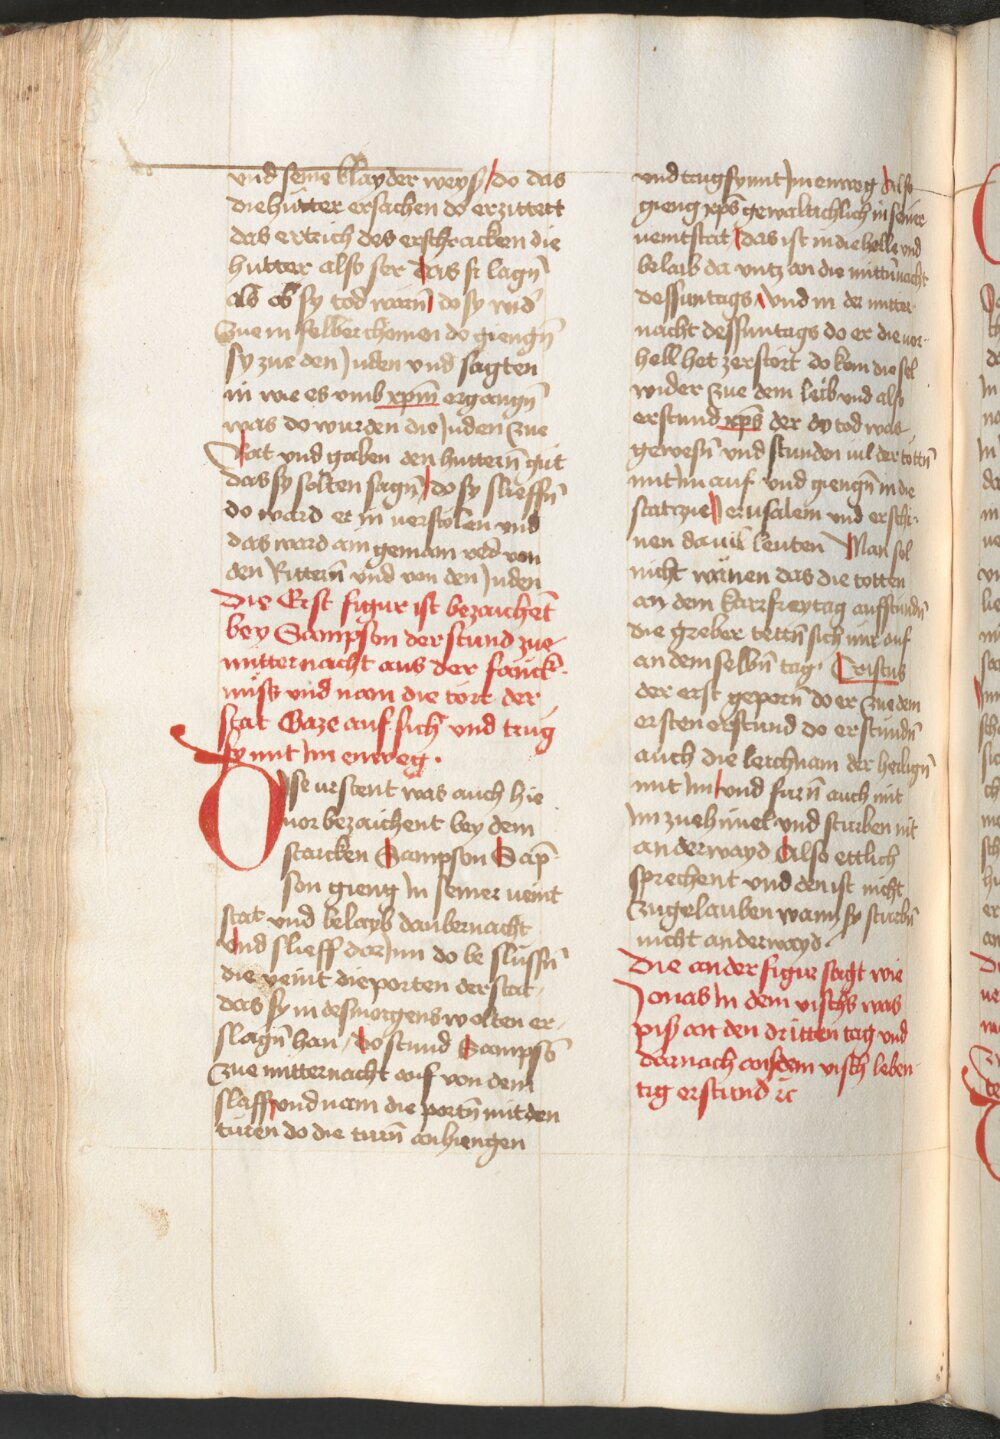 und seine klayder weyß / do das
die hütter ersachen do erzittert
das ertrich des erschracken die
hutter also ser das si lagñ
als ob sy tod warñ do sy wid᷑
zue in selber chomen do giengñ
sy zue den Juden und sagten
in wie es umb xpm̄ ergangñ
was do wurden die Juden zue
Rat und gaben den hutternn̄ gut
das sy solten sagñ / do sy slieffñ
do ward er in verstolen und
das ward ain gemain red von
den Ritternn̄ und von den Juden
Die Erst figur ist bezaichent̄
bey Sampson der stund zue
mitternacht aus der fanck-
nüss und nam die tört der
stat Gaze auf sich und trug
sy mit Im enweg .
Dise urstent was auch hie
vor bezaichent bey dem
starcken Sampson Sap̄-
son gieng In seiner veint
stat und belayb da ubernacht
und slieff dar Inn do beslussñ
die veint die porten der stat
das sy in des morgens wolten er-
slagñ han / do stund Sampsō
zue mitternacht auf von dem
slaff und nam die portñ mit den
türen do die turñ an hiengen
und trug sy mit Im enweg Also
gieng xps̄ gewaltichlich in seiner
veint stat das ist in die helle und
belaib da untz an die mittñacht
des suntags und in der mitter-
nacht des suntags do er die vor-
hell het zerstort do kom die sel
wider zue dem leib und also
erstund xps̄ der dy tod was
gewesñ und stunden vil der tottñ
mit im auf und giengñ in die
stat zue Jerusalem und erschi-
nen da vil leuten Man sol
nicht wänen das die totten
an dem karfreytag auffstundñ
die greber tettñ sich nur auf
an dem selbñ tag . Cristus
der erst geporñ do er zue dem
ersten erstund do erstundñ
auch die leichnam der heiligñ
mit im und furñ auch mit
Im zue himel und sturben nit
anderwayd Also ettlich
sprechent und den ist nicht
zu gelauben wann sy sturbñ
nicht anderwayd .
Die ander figur sagt wie
Jonas In dem vischs was
piß an den dritten tag und
darnach aus dem visch leben-
tig erstund ꝛc